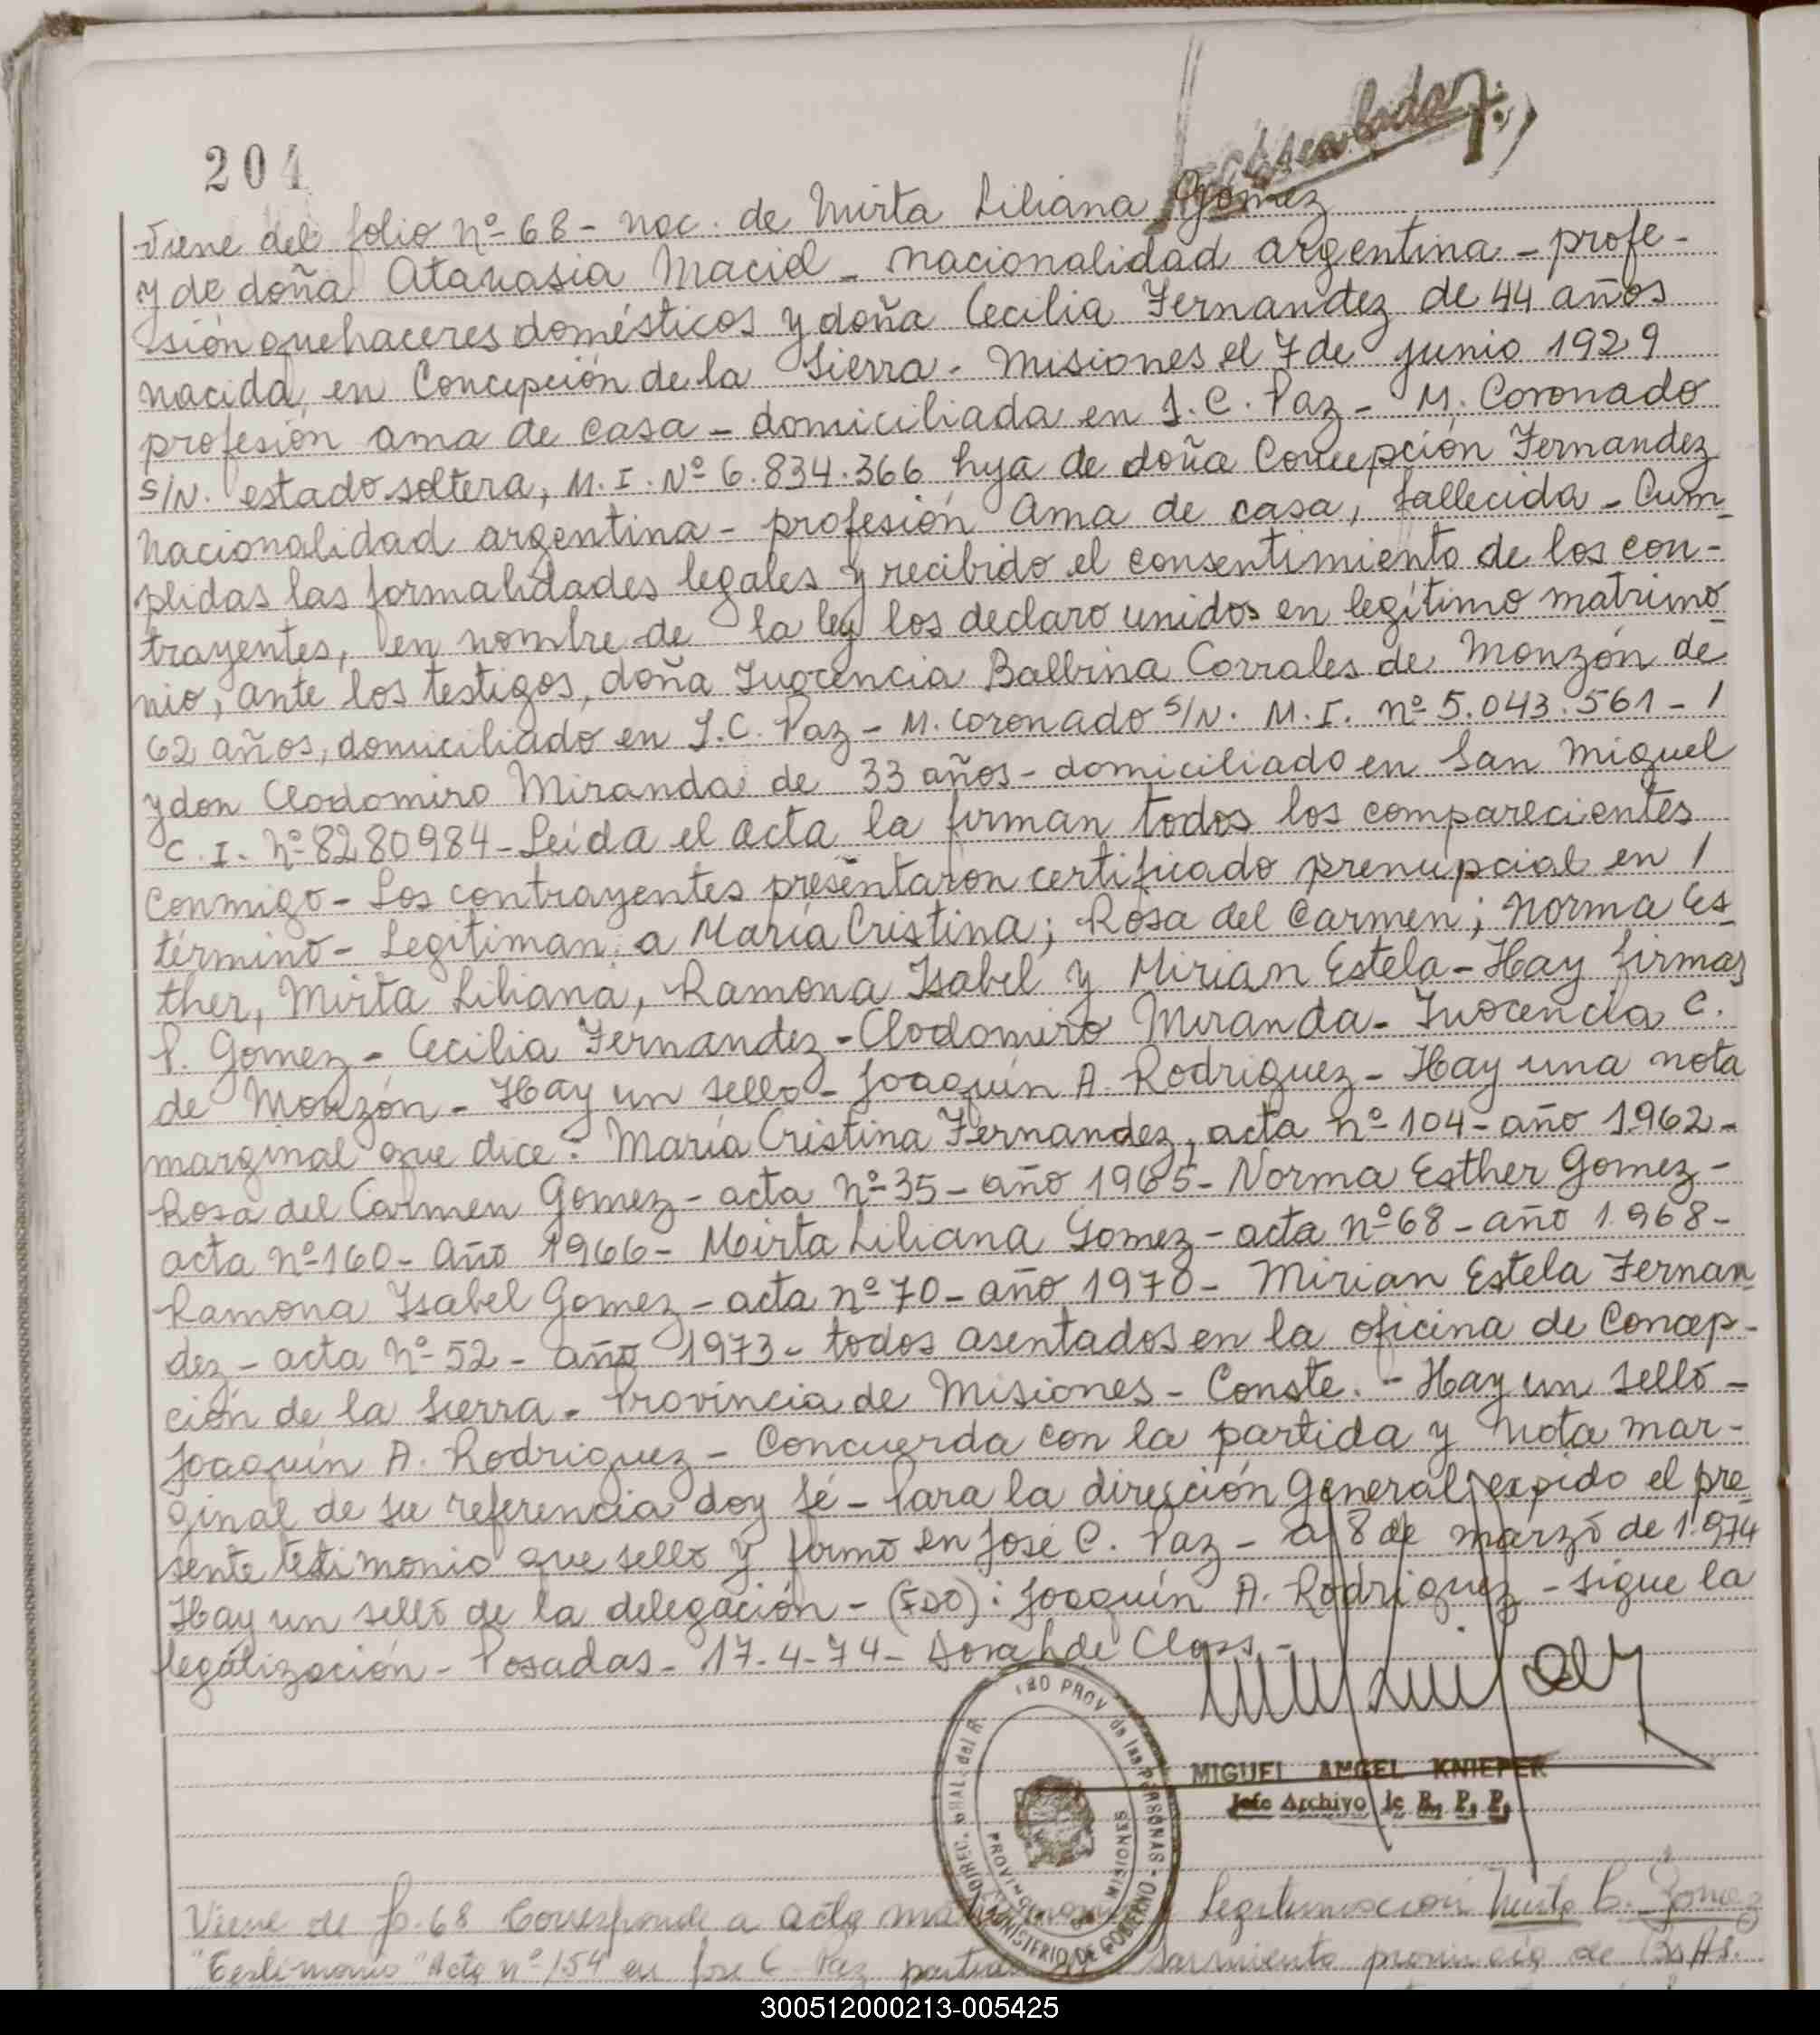 204
Viene del folio Nº 68 - nac. de Mirta Liliana Gomez
y de doña Atanasia Maciel - nacionalidad argentina - profe-
sión quehaceres domésticos y doña Cecilia Fernandez de 44 años
nacida en Concepción de la Sierra - Misiones el 7 de junio 1929
profesión ama de casa - domiciliada en J. C. Paz - M. Coronado
S/N. estado soltera, M. I. Nº 6.834.366 hija de doña Concepción Fernandez
nacionalidad argentina - profesión Ama de casa, fallecida - Cum-
plidas las formalidades legales y recibido el consentimiento de los con-
trayentes, en nombre de la ley los declaro unidos en legítimo matrimo-
nio, ante los testigos, doña Inocencia Balbina Corrales de Monzón de
62 años, domiciliado en J. C. Paz - M. Coronado S/N. M. I. nº 5.043.561 - /
y don Clodomiro Miranda de 33 años - domiciliado en San Miguel
C. I. Nº 8280984 - Leída el acta la firman todos los comparecientes
conmigo - Los contrayentes presentarón certificado prenupcial en /
término - Legitiman a María Cristina; Rosa del Carmen; Norma Es-
ther, Mirta Liliana, Ramona Isabel y Mirian Estela - Hay firmas
P. Gomez - Cecilia Fernandez - Clodomiro Miranda - Inocencia C.
de Monzón - Hay un sello - Joaquín A. Rodriguez - Hay una nota
marginal que dice: María Cristina Fernandez, acta nº 104 - año 1962 -
Rosa del Carmen Gomez - acta Nº 35 - año 1965 - Norma Esther Gomez -
acta Nº 160 - año 1966 - Mirta Liliana Gomez - acta nº 68 - año 1.968 -
Ramona Isabel Gomez - acta nº 70 - año 1970 - Mirian Estela Fernan-
dez - acta Nº 52 - año 1973 - todos asentados en la oficina de Concep-
ción de la Sierra - Provincia de Misiones - Conste. - Hay un sello -
Joaquín A. Rodriguez - Concuerda con la partida y nota mar-
ginal de su referencia doy fé - Para la dirección General expido el pre-
sente testimonio que sello y firmo en José C. Paz - a 8 de marzo de 1.974
Hay un sello de la delegación - (FDO): Joaquín A. Rodriguez - sigue la
legalización - Posadas - 17-4-74 - de Class -
MIGUEL ANGEL KNIEPER
Jefe Archivo de R. P. P.
PROV. de las PERSONAS
PROVINCIA DE MISIONES
MINISTERIO DE GOBIERNO
Viene de fo. 68 Corresponde a acta Legitimacion Mirta L. Gomez
"Testimonio" Acta nº 154 en Jose C. Paz Sarmiento provincia de Bs As.
300512000213-005425